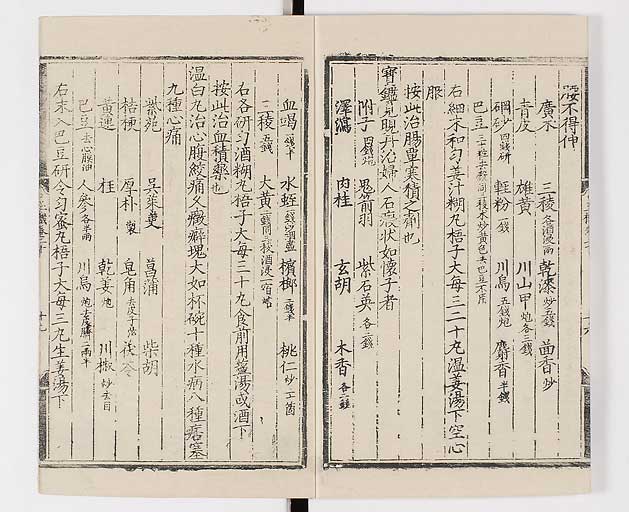 腰不得伸
廣木 三稜各酒浸二兩 乾漆炒五錢 茴香炒
青皮 雄黃 川山甲炮各三錢
硇砂四錢研 輕粉一錢 川烏五錢炮 麝香半錢
巴豆
右細末和勻姜汁糊丸梧子大每三二十丸温姜湯下空心
服
按此治腸覃寒積之劑也
寶鑑見晛丹治婦人石瘕狀如懷子者
附子四錢炮 鬼箭羽 紫石英各三錢
澤瀉 肉桂 玄胡 木香各二錢
血竭一錢半 水蛭 檳榔二錢半 桃仁炒
三稜五錢 大黃
右各研勻酒糊丸梧子大每三十丸食前用鹽湯或酒下
按此治血積藥也
温白丸治心腹絞痛久癥癖塊大如杯碗十種水病八種痞塞
九種心痛
紫菀 吳茱萸 菖蒲 柴胡
桔梗 厚朴製 皂角 茯苓
黃連 桂 乾姜炮 川椒炒去目
巴豆去心膜油 人參各半兩 川烏炮去皮臍二兩半
右末入巴豆研令勻蜜丸梧子大每三丸生姜湯下